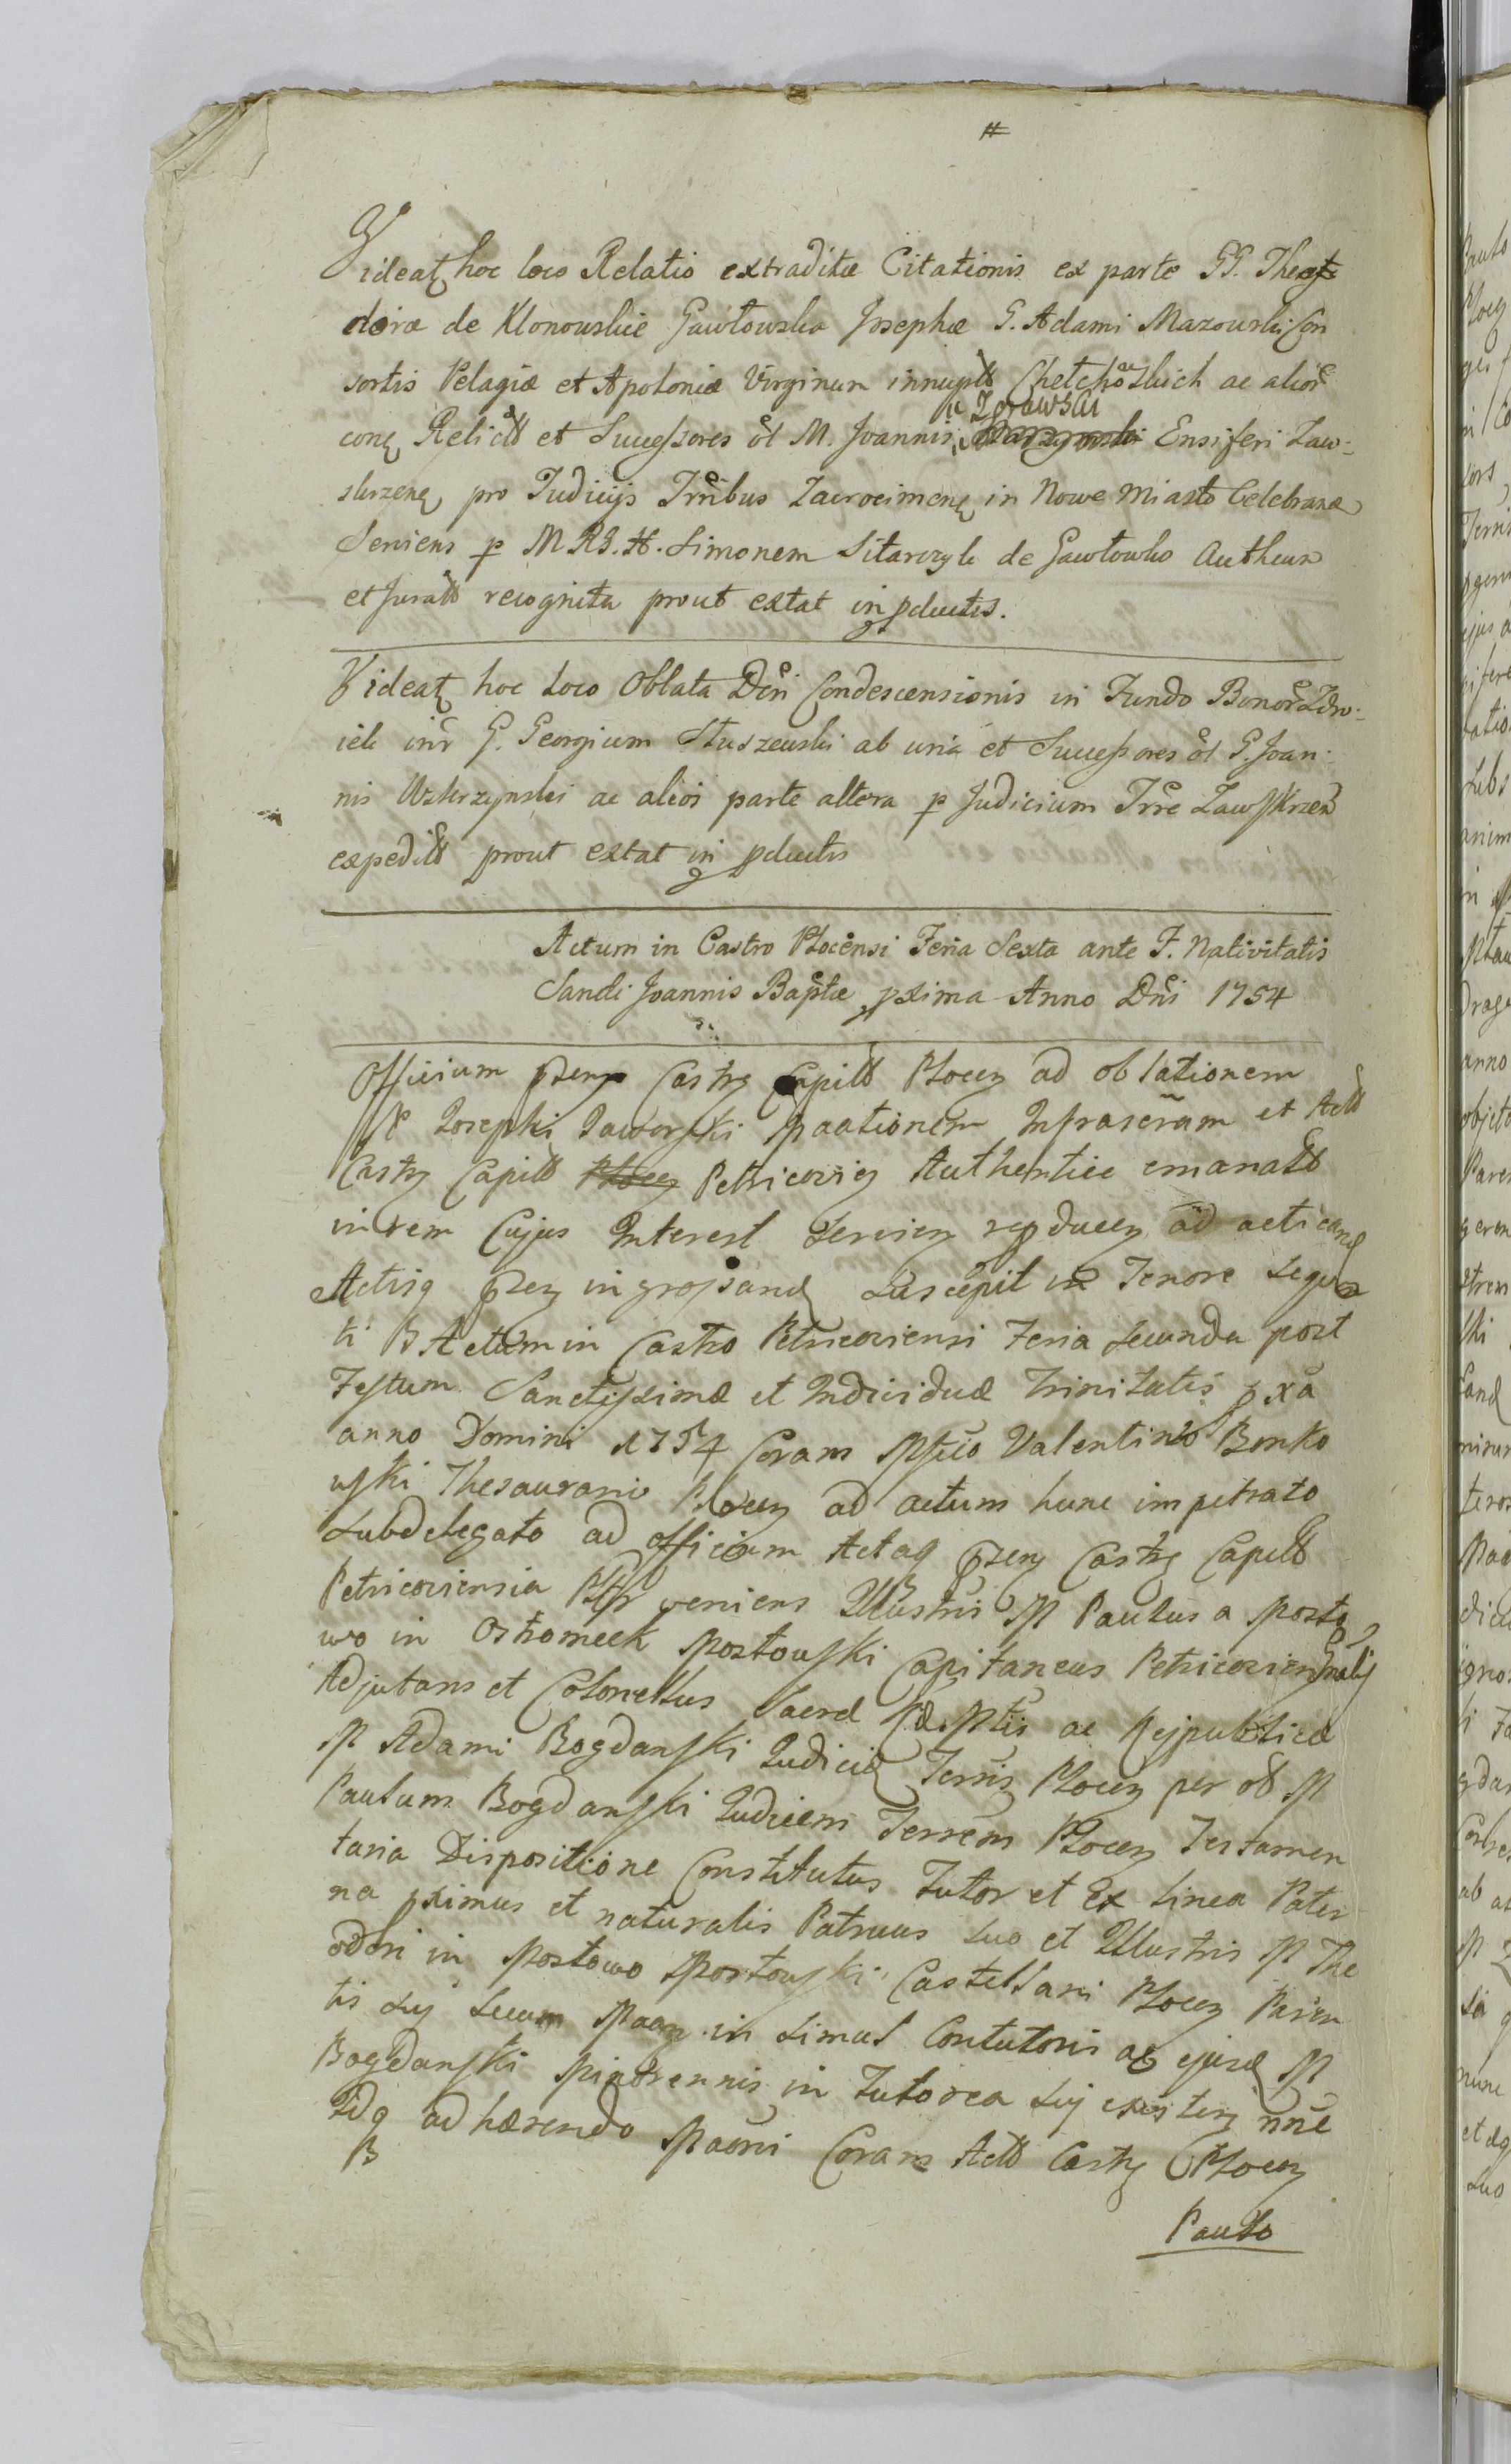 #
Videat hoc loco Relatio extraditæ Citationis ex parte GG. Theo
doræ de Klonowskie Gawłowska Josephæ G. Adami Mazowski Con
sortis Pelagiæ et Apoloniæ Virginum innupt Chełchowskich ac alior
con Relict et Successores ol M. Joannis Zgrawski Ensiferi Zaw-
skrzen pro Judicijs Trribus Zacrocimen in Nowe Miasto Celebran
Serviens p M RG. H. Simonem Sitarczyk de Gawłowko Authen
et Jurat recognita prout extat in pductis.
Videat hoc Loco Oblata Dcri Condescensionis in Fundo Bonor Zdro-
iek intr G. Georgium Słuszewski ab una et Successores ol G. Joan-
nis Wskrzynski ac alios parte altera p Judicium Trre Zawskrzen
expedit prout extat in pductis
Actum in Castro Plocensi Feria Sexta ante F. Nativitatis
Sancti Joannis Baptæ pxima Anno Dni 1754
Officium pzens Castr Capit Plocen ad oblationem
M Josephi Jaworski Maationem Infrascram et Act
Castr Capit Plocen Petricovien Authentice emanat
in rem Cujus Interest Servien repducen ad acticand
Actisq pzen ingrossand Suscepit in Tenore Sequen
ti B Actum in Castro Petricoviensi Feria Secunda post
Festum Sanctissimæ et Individuæ Trinitatis pxa
anno Domini 1754 Coram Mfico Valentino Bonko
wski Thesaurario Plocen ad actum hunc impetrato
Subdelegato ad officium Actaq pzens Castr Capit
Petricoviensia Pltr veniens Illustris M Paulus a Mosto
wo in Ostromeck Mostowski Capitaneus Petricovien Gnalis
Adjutans et Colonellus Sacræ Ræ Mttis ac Reipublicæ
M Adami Bogdanski Judicid Terris Plocen per ol M
Paulum Bogdanski Judicem Terrem Plocen Testamen
taria Dispositione Constitutus Tutor et Ex Linea Pater
na pximus et naturalis Patruus suo et Illustris M The
odori in Mostowo Mostowski Castellani Plocen Paren
tis Sui Secum Maan in simul Contutoris ac ejusd M
Bogdanski Minorennis in Tutorea Sui existen nne
Idq adhærendo Maoni Coram Act Castr Plocen
B
Paulo